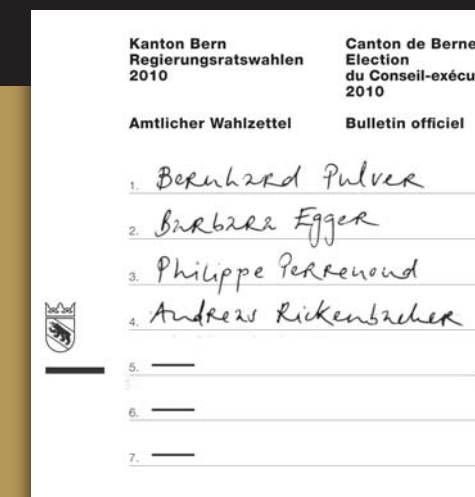 Kanton Bern
Regierungsratswahlen
2010
Amtlicher Wahlzettel
Canton de Berne
Election
du Conseil-exécu
2010
Bulletin officiel
1. Bernhard Pulver
2. Barbara Egger
3. Philippe Perrenoud
4. Andreas Rickenbacher
5. —
6. —
7. —